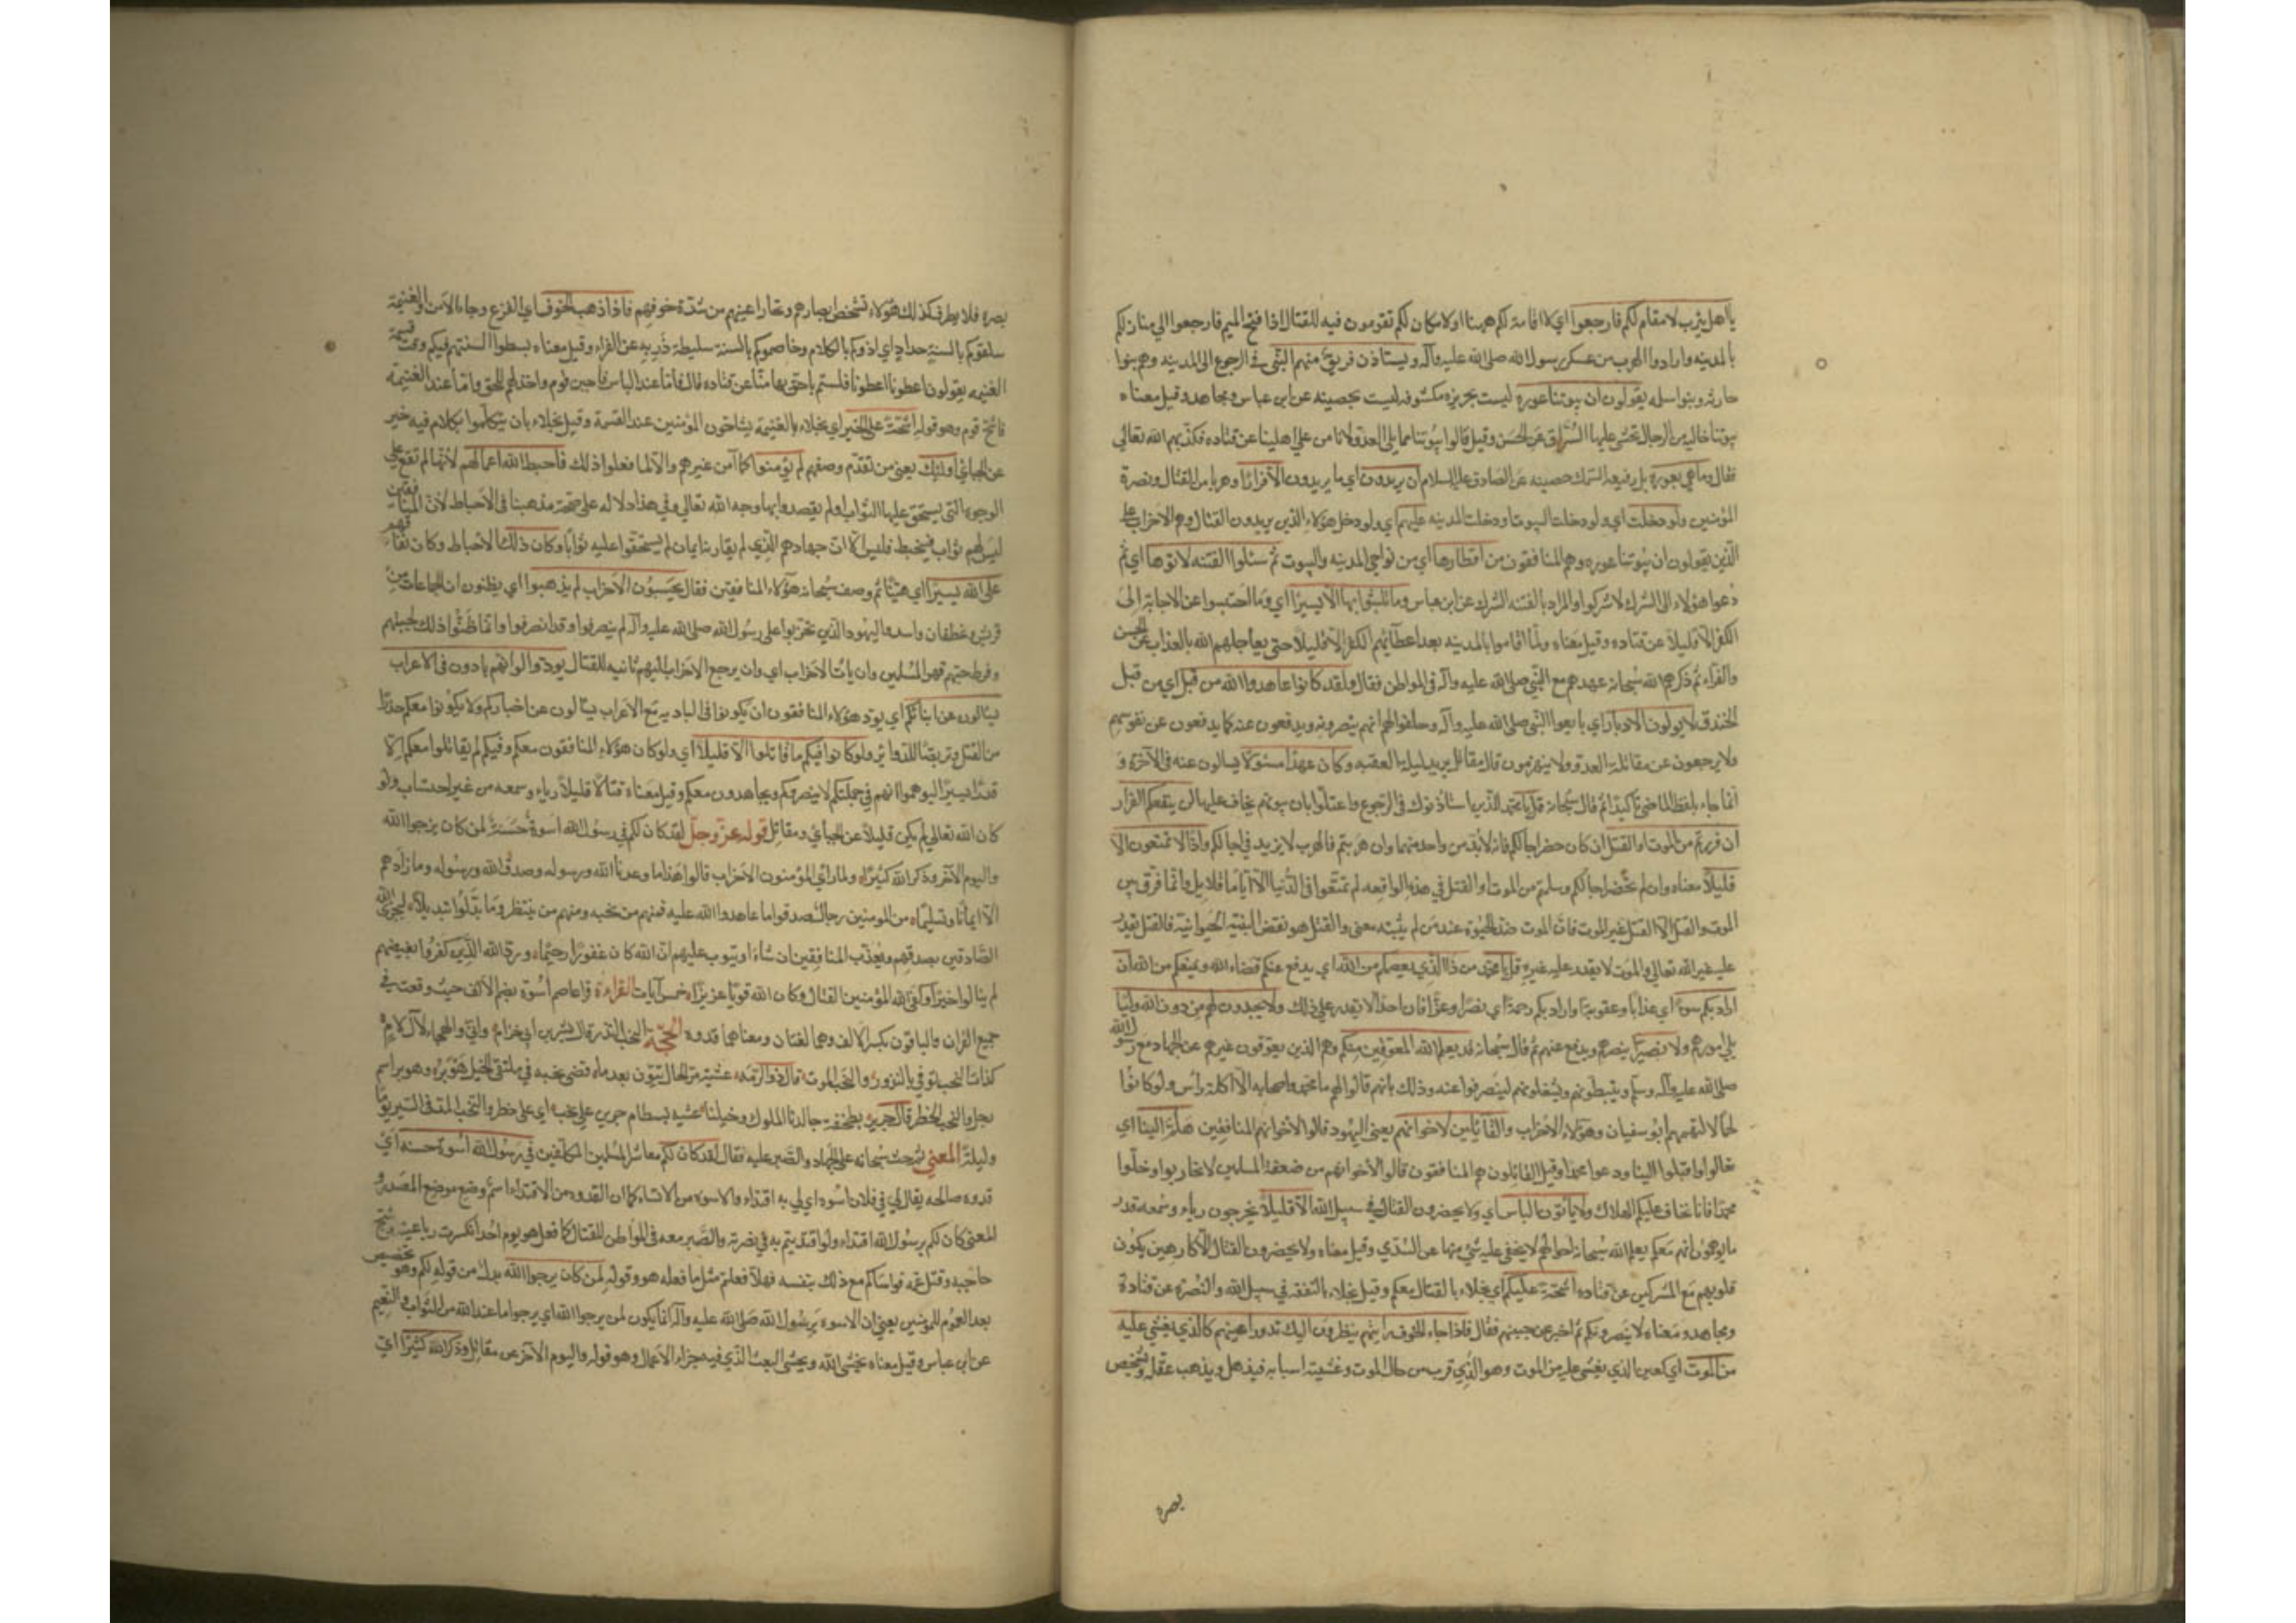 يا اهل يثرب لا مقام لكم فارجعوا اي لا اقامة لكم ههنا او لا مكان لكم تقومون فيه للقتال اذا فتح الميم فارجعوا الي منازلكم
بالمدينه وارادوا الهرب من عسكر رسول الله صلى الله عليه وآله ويستأذن فريق منهم النبي في الرجوع الى المدينه وهم بنوا
حارثه وبنوا سلمه يقولون ان بيوتنا عورة ليست بحريزه مكشوفه ليست بحصينه عن ابن عباس ومجاهد وقيل معناه
بيوتنا خاليه من الرجال نخشى عليها السراق عن الحسن وقيل قالوا بيوتنا مما يلي العدو ولا نا من على اهلينا عن قتاده فكذبهم الله تعالى
فقال وما هي بعورة بل رفيعه السمك حصينه عن الصادق عليه السلام ان يريدون اي ما يريدون الا فرارا وهربا من القتال ونصرة
المؤمنين ولو دخلت اي ولو دخلت البيوت او دخلت المدينه عليهم اي ولو دخل هؤلاء الذين يريدون القتال وهم الاحزاب على
الذين يقولون ان بيوتنا عوره وهم المنافقون من اقطارها اي من نواحي المدينه والبيوت ثم سئلوا الفتنه لآتوها اي ثم
دعوا هؤلاء الى الشرك لاشركوا والمراد بالفتنه الشرك عن ابن عباس وما تلبثوا بها الا يسيرا اي وما احتبسوا عن الاجابة الى
الكفر الا قليلا عن قتاده وقيل معناه ولما اقاموا بالمدينه بعد اعطائهم الكفر الا قليلا حتى يعاجلهم الله بالعذاب عن الحسن
والفراء ثم ذكرهم الله سبحانه عهدهم مع النبي صلى الله عليه وآله في المواطن فقال ولقد كانوا عاهدوا الله من قبل اي من قبل
الخندق لا يولون الادبار اي بايعوا النبي صلى الله عليه وآله وحلفوا له انهم ينصرونه ويدفعون عنه كما يدفعون عن نفوسهم
ولا يرجعون عن مقاتلة العدو ولا ينهزمون قال مقاتل يريد ليلة العقبه وكان عهد الله مسئولا يسالون عنه في الآخرة و
انما جاء بلفظ الماضي تأكيدا ثم قال سبحانه قل يا محمد للذين استأذنوك في الرجوع واعتلوا بان بيوتهم يخاف عليها لن ينفعكم الفرار
ان فررتم من الموت او القتل ان كان حضر آجالكم فانه لا بد من واحد منهما وان هربتم فالهرب لا يزيد في آجالكم واذا لا تمتعون الا
قليلا معناه وان لم تحضر آجالكم وسلمتم من الموت او القتل في هذه الواقعه لم تمتعوا في الدنيا الا اياما قلايل وانما فرق بين
الموت والقتل لان القتل غير الموت فان الموت ضد الحيوة عند من لم يثبته معنى والقتل هو نقض البنية الحيوانية فالقتل يقدر
عليه غير الله تعالى والموت لا يقدر عليه غيره قل يا محمد من ذا الذي يعصمكم من الله اي يدفع عنكم قضاء الله ويمنعكم من الله ان
اراد بكم سوءا اي عذابا وعقوبة او اراد بكم رحمة اي نصرا وعزا فان احدا لا يقدر على ذلك ولا يجدون لهم من دون الله وليا
يلي امورهم ولا نصيرا ينصرهم ويدفع عنهم ثم قال سبحانه قد يعلم الله المعوقين منكم وهم الذين يعوقون غيرهم عن الجهاد مع رسول الله
صلى الله عليه وآله وسلم ويثبطونهم ويشغلونهم لينصرفوا عنه وذلك بانهم قالوا لهم ما محمد واصحابه الا اكلة رأس ولو كانوا
لحما لالتهمهم ابو سفيان وهؤلاء الاحزاب والقائلين لاخوانهم يعني اليهود قالوا لاخوانهم المنافقين هلم الينا اي
تعالوا واقبلوا الينا ودعوا محمدا وقيل القائلون هم المنافقون قالوا لاخوانهم من ضعفة المسلمين لا تحاربوا وخلوا
محمدا فانا نخاف عليكم الهلاك ولا يأتون الباس اي ولا يحضرون القتال في سبيل الله الا قليلا يخرجون رياء وسمعه قدر
ما يوهمون انهم معكم يعلم الله سبحانه احوالهم لا يخفى عليه شئ منها عن السدي وقيل معناه ولا يحضرون القتال الا كارهين يكون
قلوبهم مع المشركين عن قتاده اشحة عليكم اي بخلاء بالقتال معكم وقيل بخلاء بالنفقه في سبيل الله والنصرة عن قتادة
ومجاهد ومعناه لا ينصرونكم ثم اخبر عن جبنهم فقال فاذا جاء الخوف رايتهم ينظرون اليك تدور اعينهم كالذي يغشى عليه
من الموت اي كعين الذي يغشى عليه من الموت وهو الذي قرب من حال الموت وغشيته اسبابه فيذهل ويذهب عقله ويشخص
بصره
بصره فلا يطرف كذلك هؤلاء تشخص ابصارهم وتحار اعينهم من شدة خوفهم فاذا ذهب الخوف اي الفزع وجاء الامن والغنيمة
سلقوكم بالسنة حداد اي اذوكم بالكلام وخاصموكم بالسنة سليطة ذربه عن الفراء وقيل معناه بسطوا السنتهم فيكم وقت قسمة
الغنيمه يقولون اعطونا اعطونا فلستم باحق بها منا عن قتاده قال فاما عند الباس فاجبن قوم واخذلهم للحق واما عند الغنيمة
فاشح قوم وهو قوله اشحة على الخير اي بخلاء بالغنيمة يشاحون المؤمنين عند القسمة وقيل بخلاء بان يتكلموا بكلام فيه خير
عن الجبائي اولئك يعني من تقدم وصفهم لم يؤمنوا كما آمن غيرهم والا لما فعلوا ذلك فاحبط الله اعمالهم لانها لم تقع على
الوجوه التي يستحق عليها الثواب اذ لم يقصدوا بها وجه الله تعالى وفي هذا دلاله على صحة مذهبنا في الاحباط لان المنافقين
ليس لهم ثواب فيحبط فليس الا ان جهادهم الذي لم يقارنه ايمان لم يستحقوا عليه ثوابا وكان ذلك الاحباط وكان نفاقهم
على الله يسيرا اي هينا ثم وصف سبحانه هؤلاء المنافقين فقال يحسبون الاحزاب لم يذهبوا اي يظنون ان الجماعات من
قريش وغطفان واسد واليهود الذين تحزبوا على رسول الله صلى الله عليه وآله لم ينصرفوا وقد انصرفوا وانما ظنوا ذلك لجبنهم
وفرط حبهم قهر المسلمين وان يأت الاحزاب اي وان يرجع الاحزاب اليهم ثانيه للقتال يودوا لو انهم بادون في الاعراب
يسالون عن انبائكم اي يود هؤلاء المنافقون ان يكونوا في الباديه مع الاعراب يسالون عن اخباركم ولا يكونوا معكم حذرا
من القتل وتربصا للدوائر ولو كانوا فيكم ما قاتلوا الا قليلا اي ولو كان هؤلاء المنافقون معكم وفيكم لم يقاتلوا معكم الا
قدرا يسيرا ليوهموا انهم في جملتكم لا لينصروكم ويجاهدون معكم وقيل معناه قتالا قليلا رياء وسمعه من غير احتساب ولو
كان الله تعالى لم يكن قليلا عن الجبائي ومقاتل قوله عز وجل لقد كان لكم في رسول الله اسوة حسنة لمن كان يرجوا الله
واليوم الآخر وذكر الله كثيرا ولما راي المؤمنون الاحزاب قالوا هذا ما وعدنا الله ورسوله وصدق الله ورسوله وما زادهم
الا ايمانا وتسليما من المومنين رجال صدقوا ما عاهدوا الله عليه فمنهم من قضى نحبه ومنهم من ينتظر وما بدلوا تبديلا ليجزى الله
الصادقين بصدقهم ويعذب المنافقين ان شاء او يتوب عليهم ان الله كان غفورا رحيما ورد الله الذين كفروا بغيضهم
لم ينالوا خيرا وكفى الله المؤمنين القتال وكان الله قويا عزيزا خمس آيات القراءة قرا عاصم اسوة بضم الالف حيث وقعت في
جميع القرآن والباقون بكسر الالف وهما لغتان ومعناهما قدوه الحجة النحب النذر قال بشر بن ابي خازم
عشية فر الحارثيون بعد ما قضى نحبه في ملتقى الخيل هوبر وهوبر اسم
رجل والنحب الخطر قال جرير بطخفة جالدنا الملوك وخيلنا عشيه بسطام جرين على نحب اي على خطر والنحب المد في السير يوما
وليلة المعنى ثم حث سبحانه على الجهاد والصبر عليه فقال لقد كان لكم معاشر المسلمين المكلفين في رسول الله اسوة حسنه اي
قدوه صالحه يقال لي في فلان اسوه اي لي به اقتداء والاسوه من الاتساء كما ان القدوه من الاقتداء اسم وضع موضع المصدر
المعنى كان لكم برسول الله اقتداء ولو اقتديتم به في نصرته والصبر معه في المواطن للقتال كما فعل هو يوم احد اذ انكسرت رباعيته وشج
حاجبه وقتل عمه فواساكم مع ذلك بنفسه فهلا فعلتم مثل ما فعله هو وقوله لمن كان يرجوا الله بدل من قوله لكم وهو تخصيص
بعد العموم للمؤمنين يعني ان الاسوه برسول الله صلى الله عليه وآله انما يكون لمن يرجوا الله اي يرجوا ما عند الله من الثواب والنعيم
عن ابن عباس وقيل معناه يخشى الله ويخشى البعث الذي فيه جزاء الاعمال وهو قوله واليوم الآخر عن مقاتل وذكر الله كثيرا اي